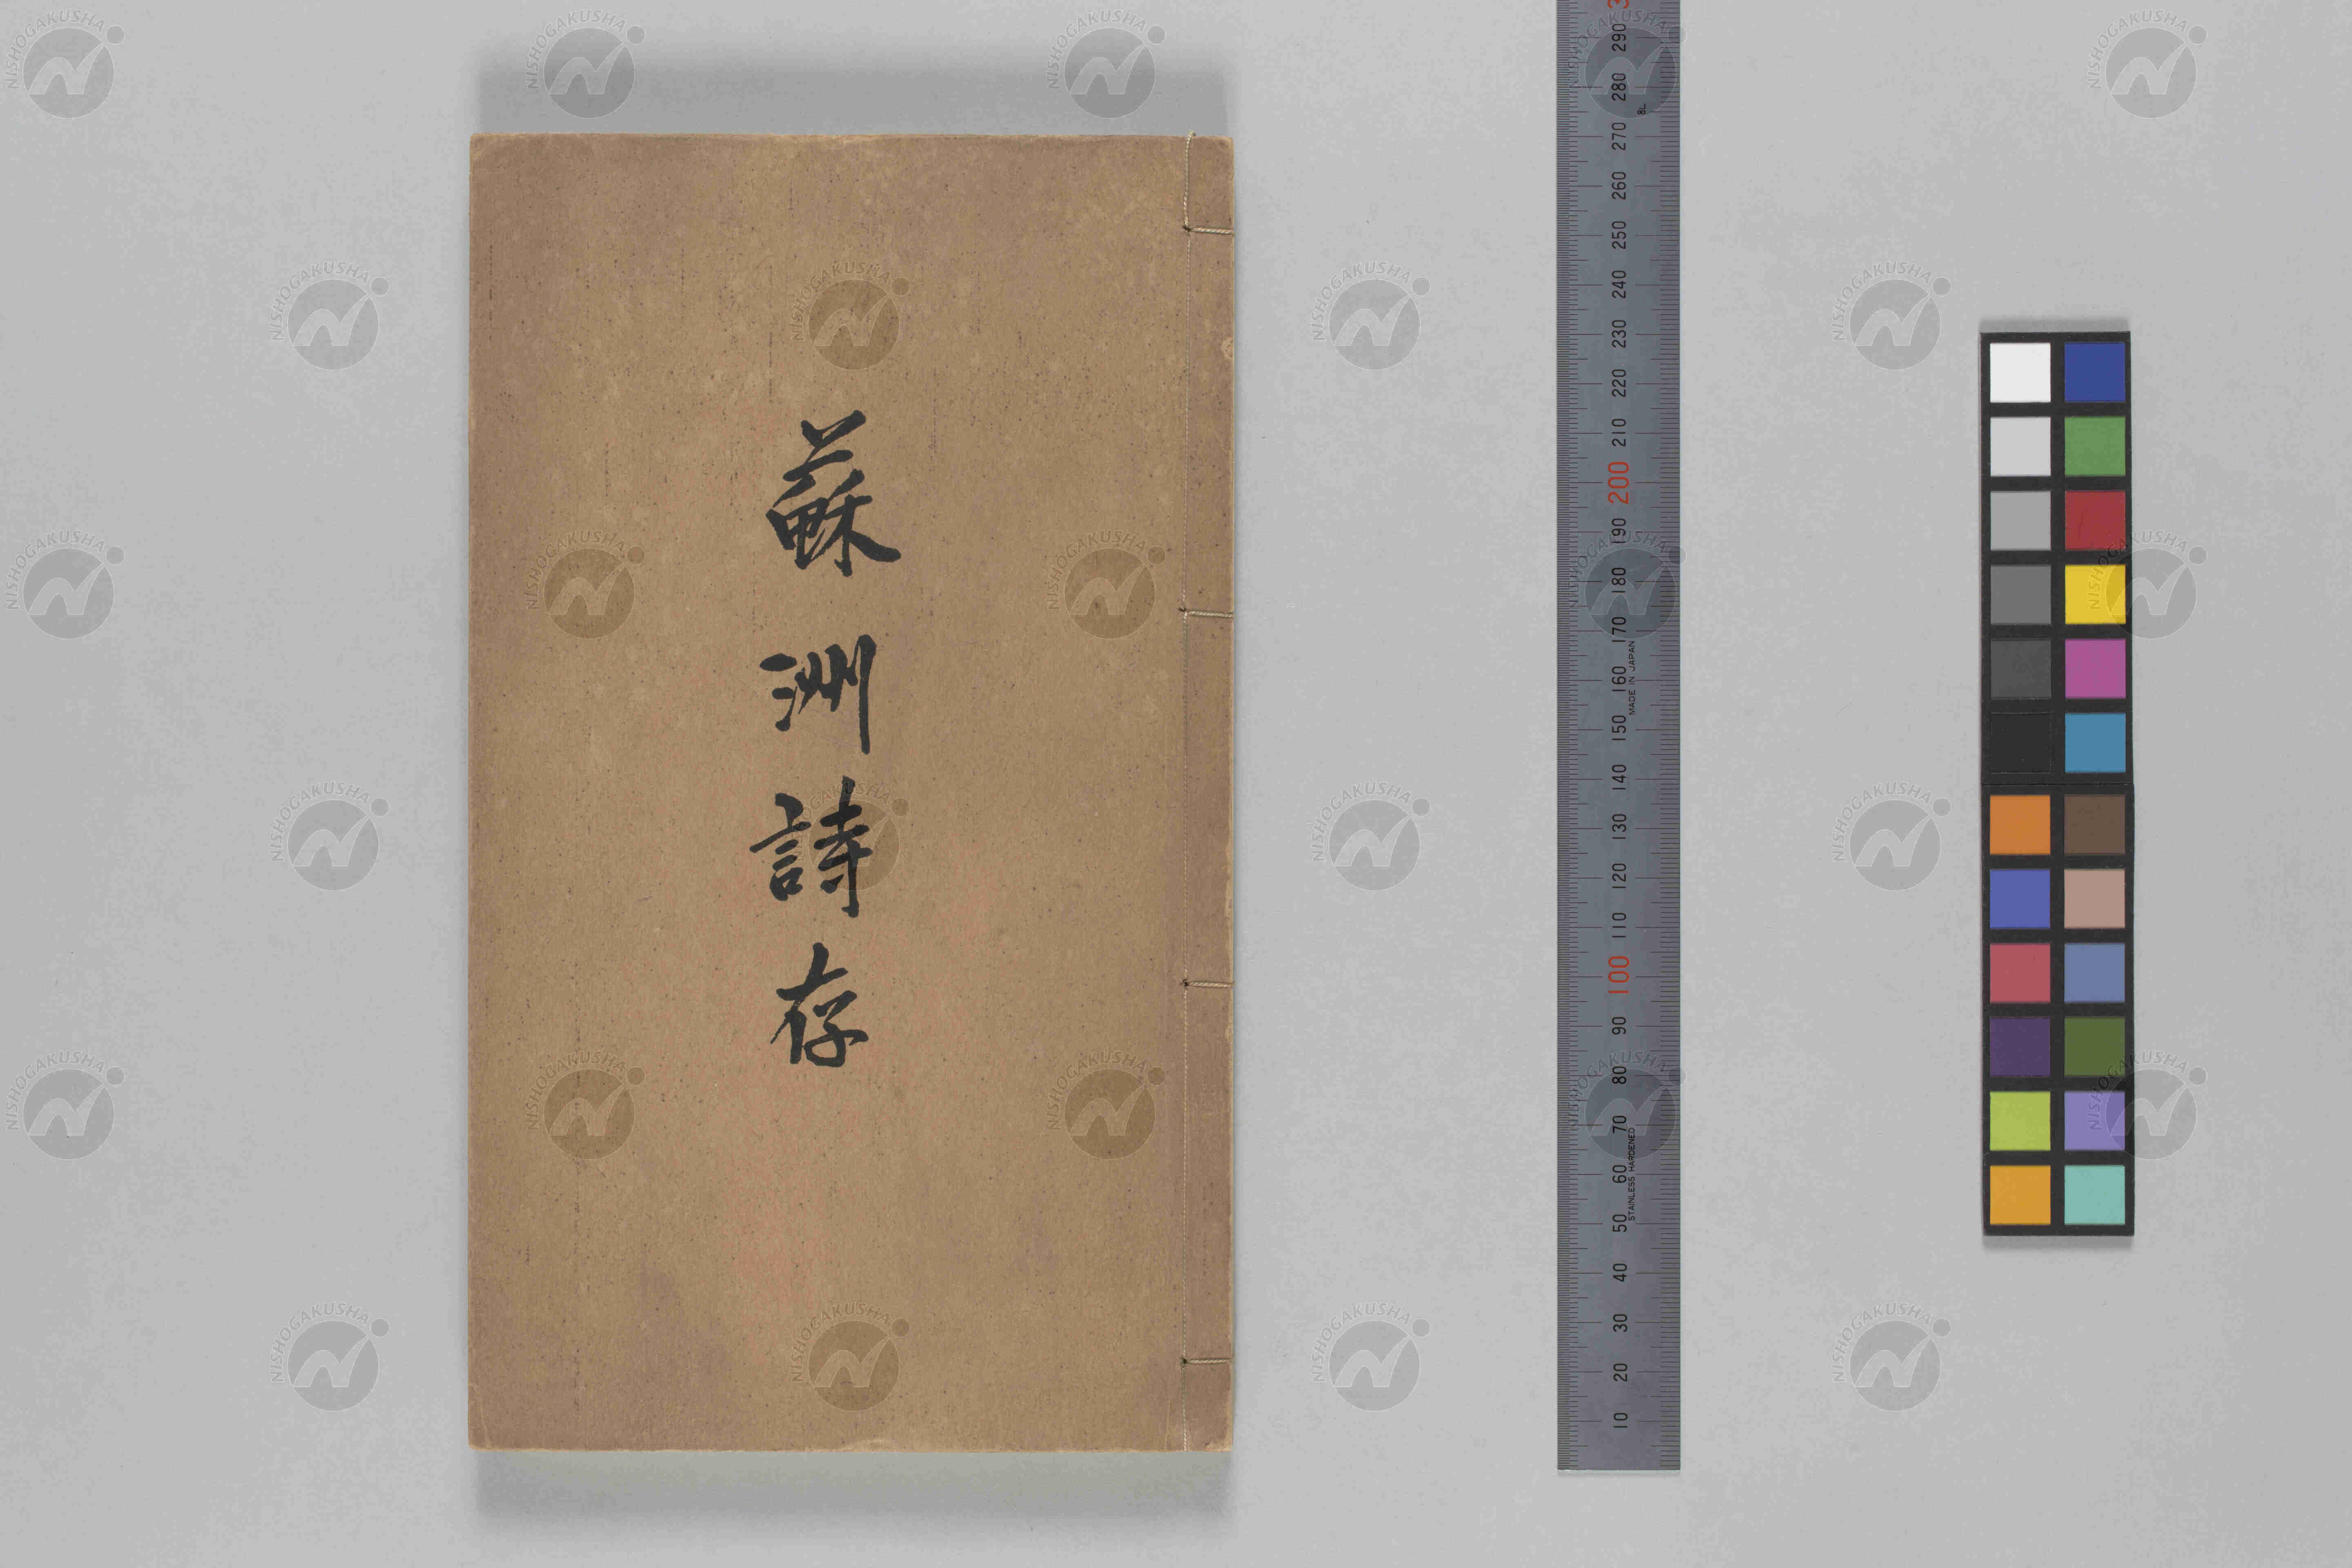 蘇洲詩存
NISHOGAKUSHA
290
280
8L
270
260
250
240
230
220
210
200
190
180
170
MADE IN JAPAN
160
150
140
130
120
110
100
90
80
70
STAINLESS HARDENED
60
50
40
30
20
10